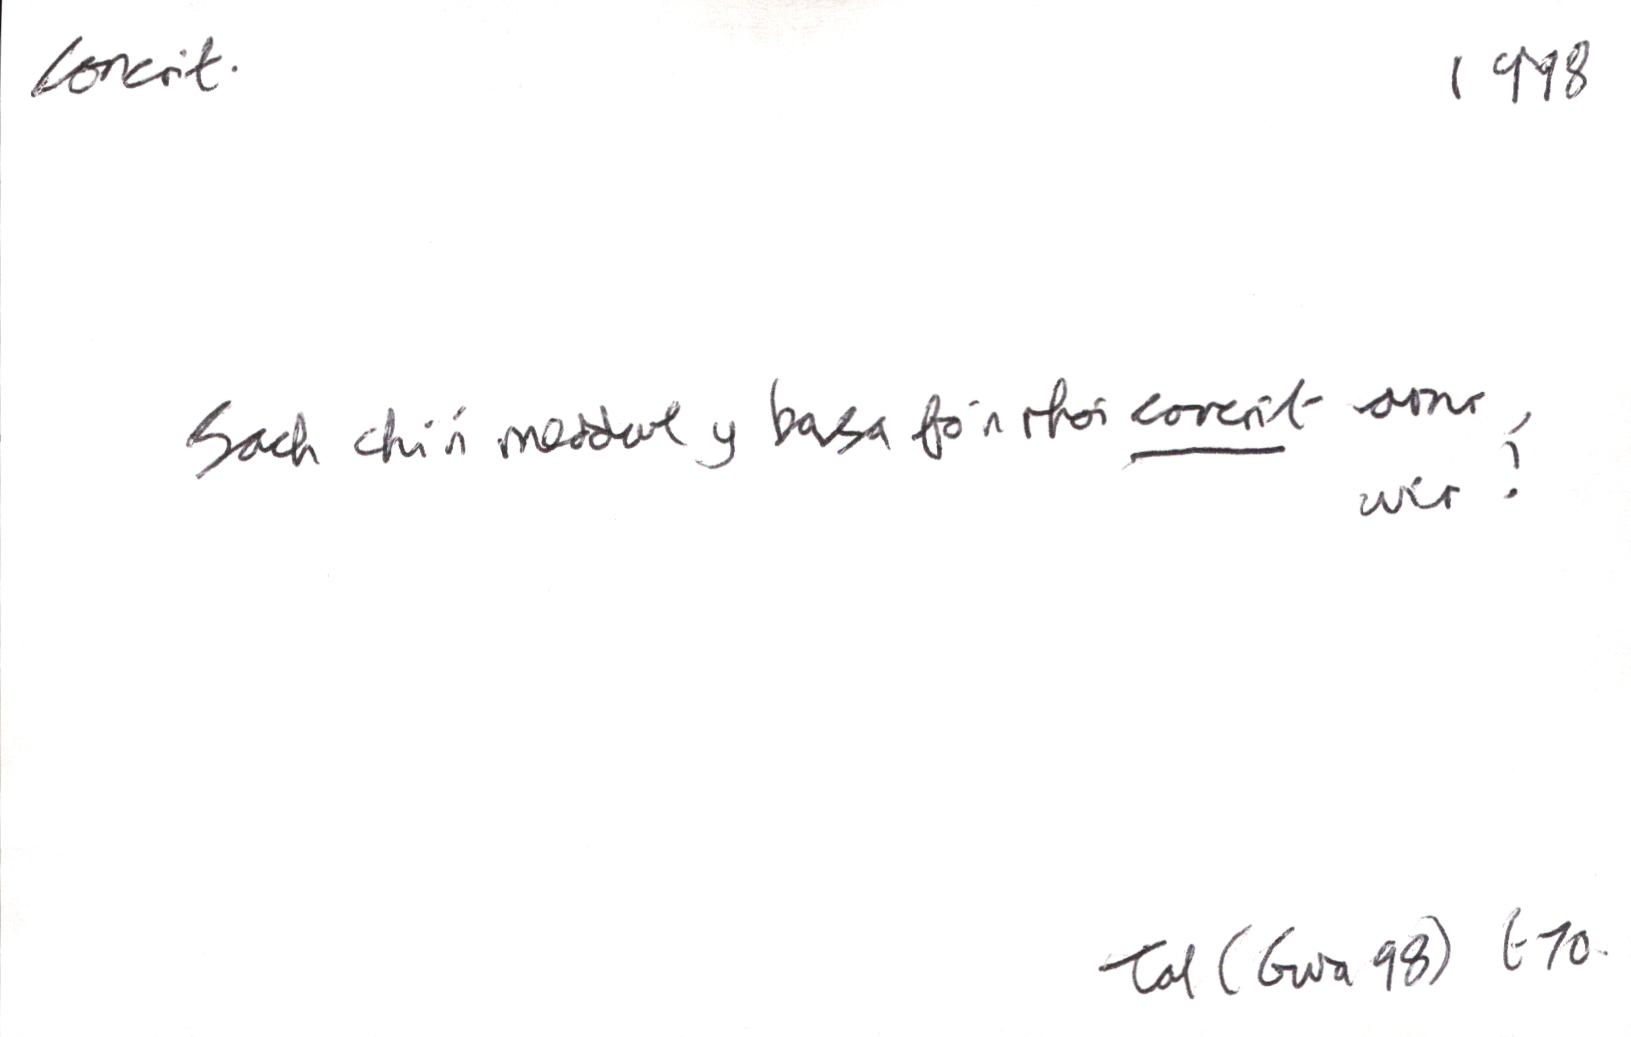 Concrit. 1998
Sach chi'n meddwl y basa fo'n rhoi concrit arno,
wir?
Tal (Gwa 98) t 70.